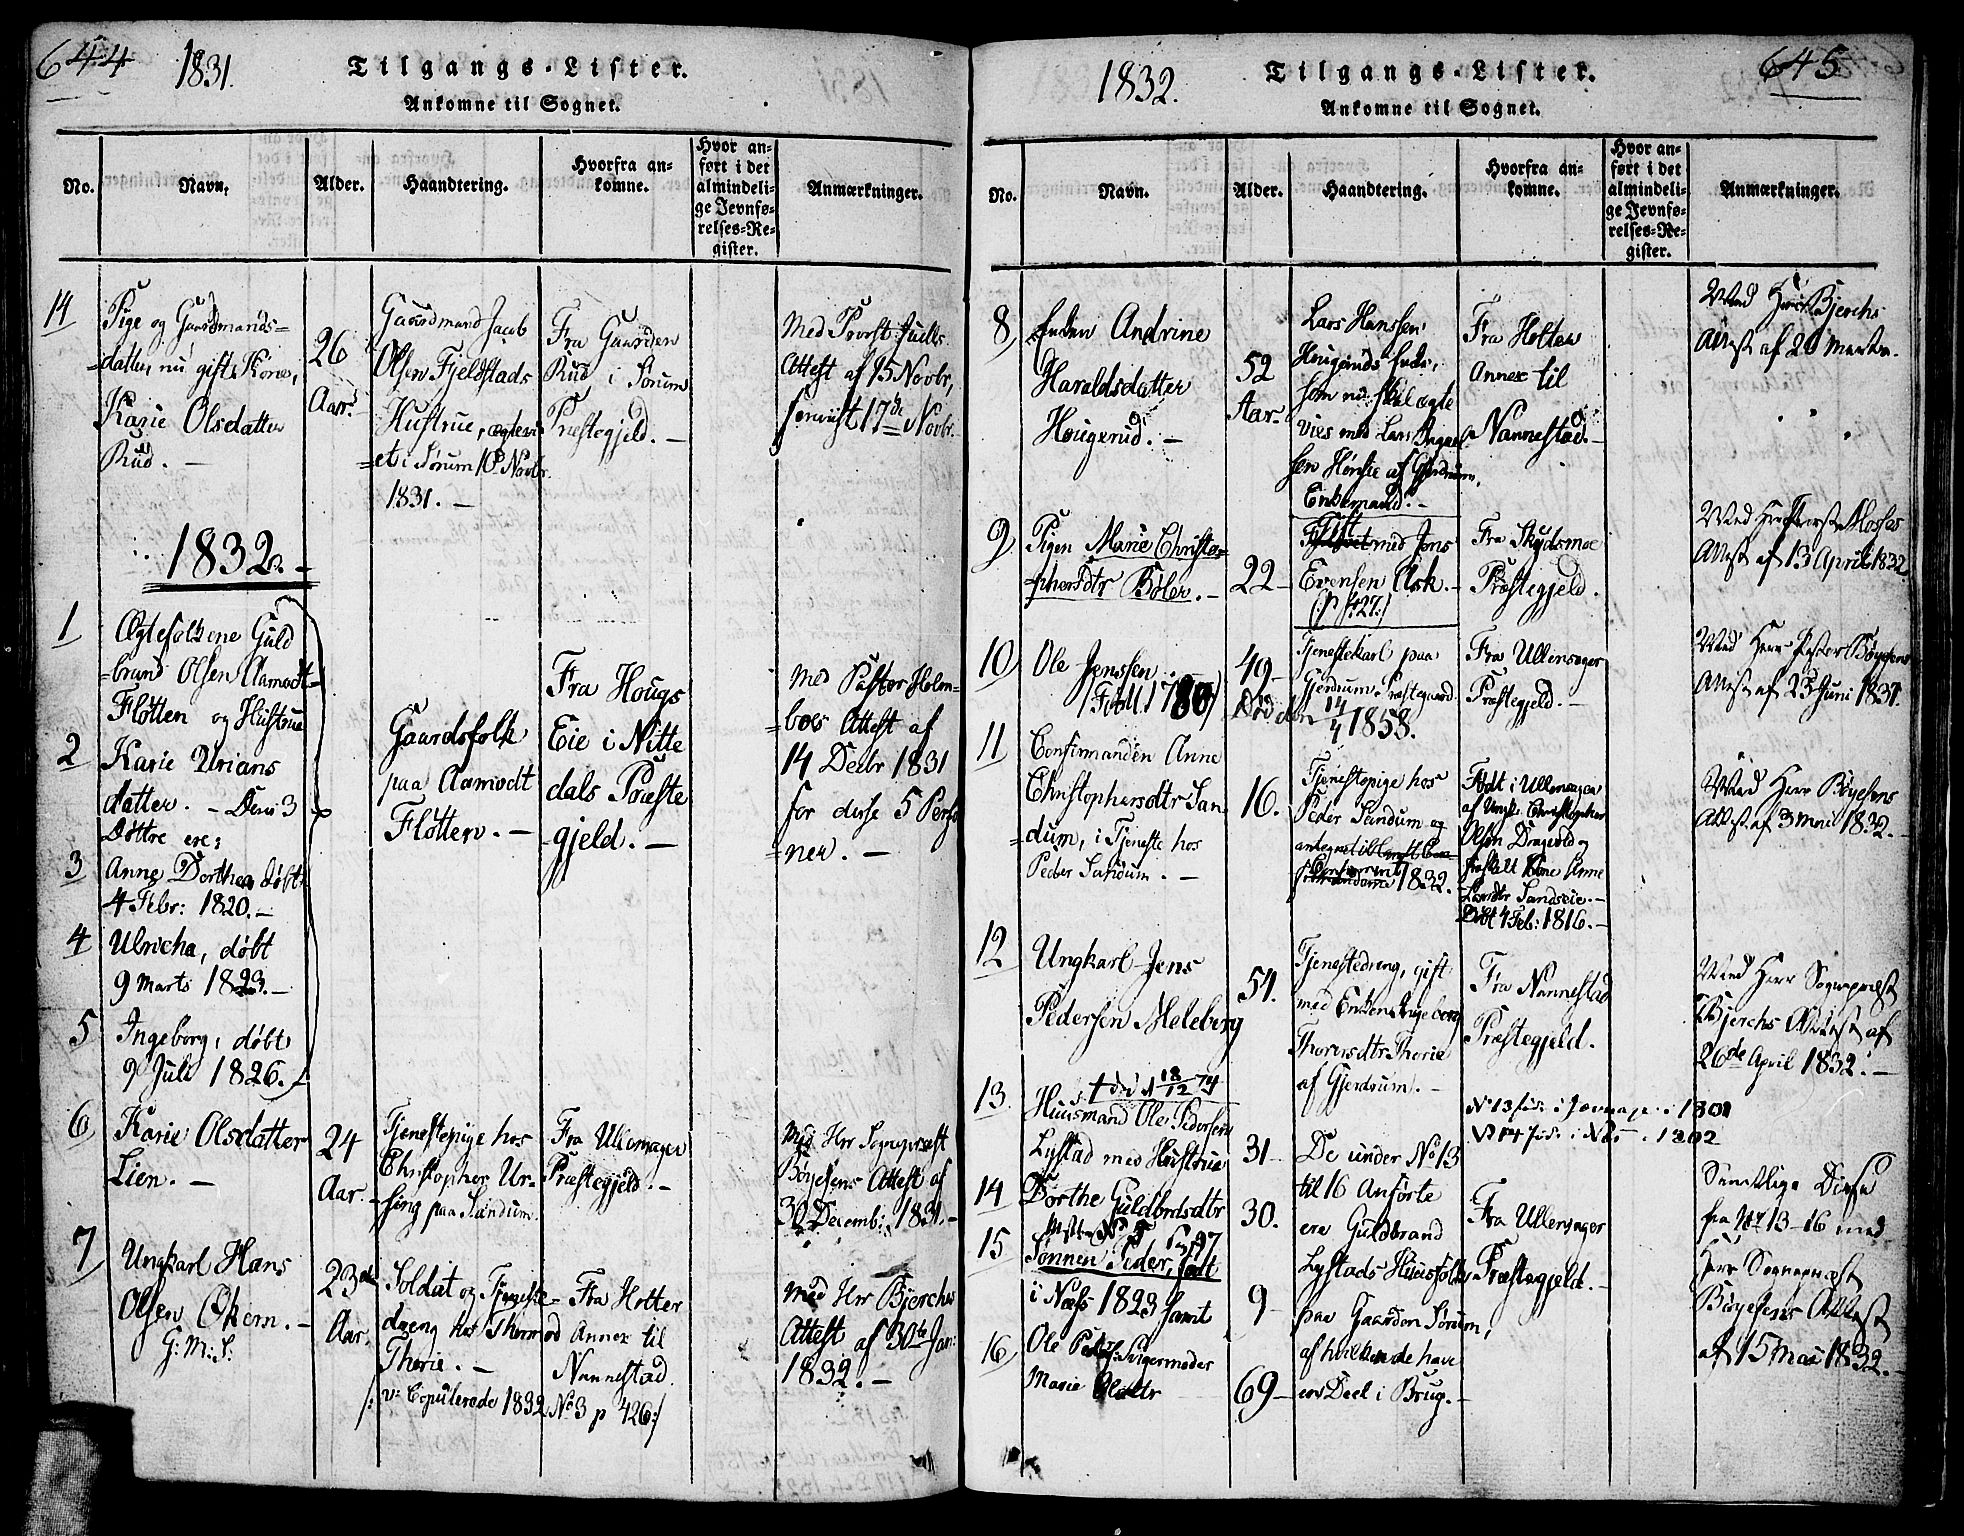 644
1831.
Tilgangs-Lister.
Ankomne til Sognet.
No.
Navn.
Alder.
Haandtering.
Hvorfra an-
komne.
Hvor an-
ført i det
almindeli-
ge Jevnfø-
relses-Re-
gister.
Anmærkninger.
14
Pige og Gaardmands-
datter, nu gift Kone,
Karie Olsdatter
Rud. -
26
Aar.
Gaardmand Jacob
Olsen Fjeldstads
Hustrue, ægtevi-
et i Sørum 10 Novbr
1831. -
Fra Gaarden
Rud i Sørum
Præstegjeld. -
Med Provst Juells
Attest af 15 Novbr,
17de Novbr. -
1832. -
1
Ægtefolkene Guld
brand Olsen Aamodt-
Fløtten og Hustrue
2
Karie Urians
datter. - Deres 3
Døttre ere:
3
Anne Dorthea, døbt
4 Febr: 1820. -
4
Ulricha, døbt
9 Marts 1823. -
5
Ingeborg, døbt
9 Juli 1826. -
Gaardsfolk
paa Aamodt
Fløtten. -
Fra Hougs
Eie i Nitte
dals Præste
gjeld. -
Med Pastor Holm-
boes Attest af
14 Decbr 1831
for disse 5 Perso
ner. -
6
Karie Olsdatter
Lien. -
24
Aar. -
Tjenestepige hos
Christopher Ur-
sing paa Sandum.
Fra Ullensager
Præstegjeld. -
Med Hrr Sognepræst
Bøyesens Attest af
30 Decemb: 1831. -
7
Ungkarl Hans
Olsen Økern. -
G: M: S:
23
Aar.
Soldat og Tjeneste-
dreng hos Thormod
Thorie. -
Fra Holter
Annex til
Nannestad.
/: v: Copulerede 1832 No 3 p 426:/
Med Hrr Bjerchs
Attest af 30te Jan:
1832. -
645
1832.
Tilgangs-Lister.
Ankomne til Sognet.
No.
Navn.
Alder.
Haandtering.
Hvorfra an-
komne.
Hvor an-
ført i det
almindeli-
ge Jevnfø-
relses-Re-
gister.
Anmærkninger.
8
Enken Andrine
Haraldsdatter
Hougerud. -
52
Aar.
Lars Hanssen
Hougeruds Enke,
som nu skal ægte
vies med Lars
sen af Gjerdrum,
Enkemand. -
Fra Holter
Annex til
Nannestad. -
Med Herr Bjerchs
Attest af 20 Marts.
9
Pigen Marie Christo-
phersdtr Bøler. -
22 -
Gift
med Jens
Evensen Ask. -
(: p 427:)
Fra Skydsmoe
Præstegjeld.
Med Herr
Attest af 13 April 1832
10
Ole Jenssen
(Født 1780)
49 -
Tjenestekarl paa
Gjerdrum Præstegaard.
Død den 14/4 1858.
Fra Ullensager
Præstegjeld. -
Med Herr Pastor Bøyesens
Attest af 25 Juni 1831.
11
Confirmanden Anne
Christophersdtr San-
dum, i Tjeneste hos
Peder Sandum. -
16.
Tjenestepige hos
Peder Sandum og
antegnet
1832. -
Født i Ullensager
af Ungk: Christopher
Olsen Dragvold og
Anne
Sandseie. -
Døbt 4 Feb: 1816. -
Med Herr Bøyesens
Attest af 3 Mai 1832. -
12
Ungkarl Jens
Pedersen Meleberg
54.
Tjenestedreng, gift
med Enken Ingeborg
Thorersdtr Thorie
af Gjerdrum. -
Fra Nannestad
Præstegjeld.
Med Herr Sognepræst
Bjerchs Attest af
26de April 1832. -
† død 18/12 74
13.
Huusmand Ole Pedersen
Lystad med Hustrue
31 -
De under No 13
til 16 Anførte
ere Guldbrand
Lystads Huusfolk
paa Gaarden Sørum,
af hvilken de have
en Deel i Brug. -
14
Dorthe Guldbrdsdtr
30.
15
Sønnen Peder, født
i Næs 1823 samt
9 -
16
Ole Peders: Svigermoder
Marie Olsdtr
69 -
No 13 i 1801
No 14 i 1802
Fra Ullensager
Præstegjeld. -
Samtlige Disse
fra No 13-16 med
Herr Sognepræst
Bøyesens Attest
af 15 Mai 1832. -